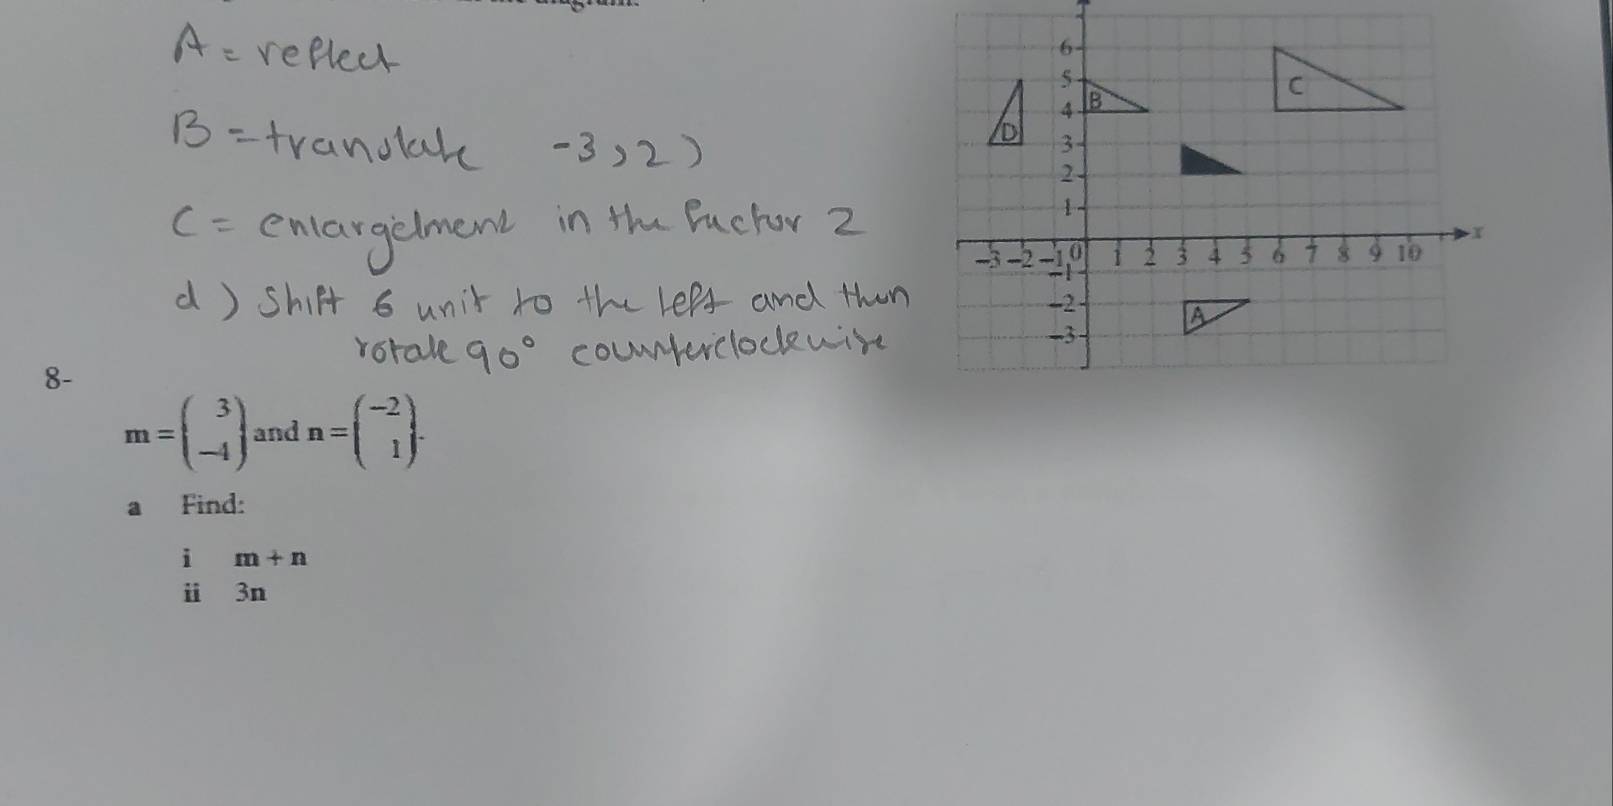 diagram.
A = reflect
B = translate -3, 2)
C = enlargelment in the factor 2
d) Shift 6 unit to the left and then
rotate 90° counterclockwise
6
5
4
3
2
1
-3 -2 -1 0 1 2 3 4 5 6 7 8 9 10 x
-1
-2
-3
D B C
A
8-
m = (3 -4) and n = (-2 1).
a Find:
i m + n
ii 3n